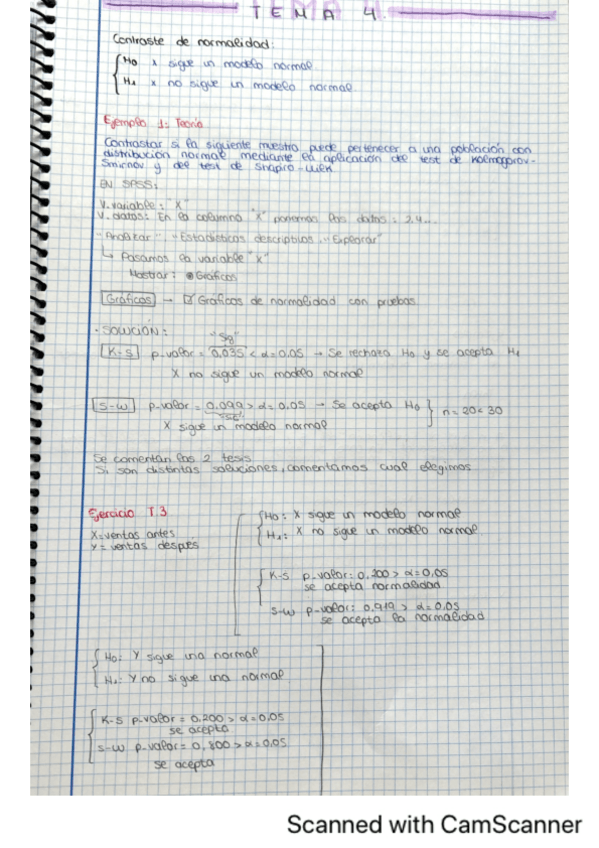 TEMA 4
Contraste de normalidad:
H0 x sigue un modelo normal.
H1 x no sigue un modelo normal
Ejemplo 1: Teoría
Contrastar si la siguiente muestra puede pertenecer a una población con
distribución normal mediante la aplicación del test de Kolmogorov-
Smirnov y del test de Shapiro-Wilk
EN SPSS:
V. variable: "X"
V. datos: En la columna "X" ponemos los datos: 2,4...
"Analizar", "Estadísticos descriptivos", "Explorar"
↳ Pasamos la variable "x"
Mostrar: Gráficos
Gráficos → ☑ Gráficos de normalidad con pruebas
· SOLUCIÓN:
"Sg"
K-S p-valor = 0,035 < α = 0.05 → Se rechaza H0 y se acepta H1
X no sigue un modelo normal
S-W p-valor = 0,099 > α = 0.05 → Se acepta H0 } n = 20 < 30
X sigue un modelo normal
Se comentan los 2 tests
Si son distintas soluciones, comentamos cual elegimos
Ejercicio T.3
X = ventas antes
Y = ventas después
H0: X sigue un modelo normal
H1: X no sigue un modelo normal
K-S p-valor: 0,200 > α = 0,05
se acepta normalidad
S-W p-valor: 0,919 > α = 0.05
se acepta la normalidad
H0: Y sigue una normal
H1: Y no sigue una normal
K-S p-valor = 0.200 > α = 0.05
se acepta
S-W p-valor = 0,800 > α = 0.05
se acepta
Scanned with CamScanner